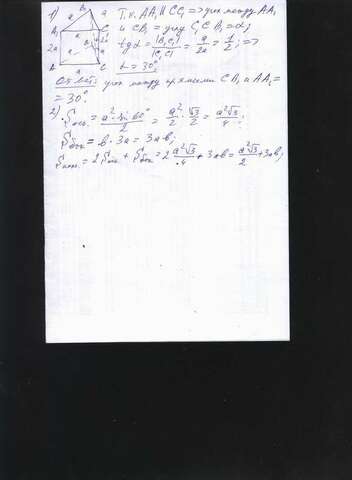 1) Т.к. AA₁ ∥ CC₁ => угол между AA₁
B₁ a a a A₁ C₁ 2a 2a B a a A a C
и CB₁ = углу C₁CB₁ = α;
tg α = |B₁C₁| / |C₁C| = a/2a = 1/2; =>
α = 30°
Ответ: угол между прямыми CB₁ и AA₁ =
= 30°.
2) Sосн. = a²·sin 60°/2 = a²/2 · √3/2 = a²√3/4;
Sбок = b · 3a = 3ab;
Sполн. = 2Sосн + Sбок = 2 a²√3/4 + 3ab = a²√3/2 + 3ab;